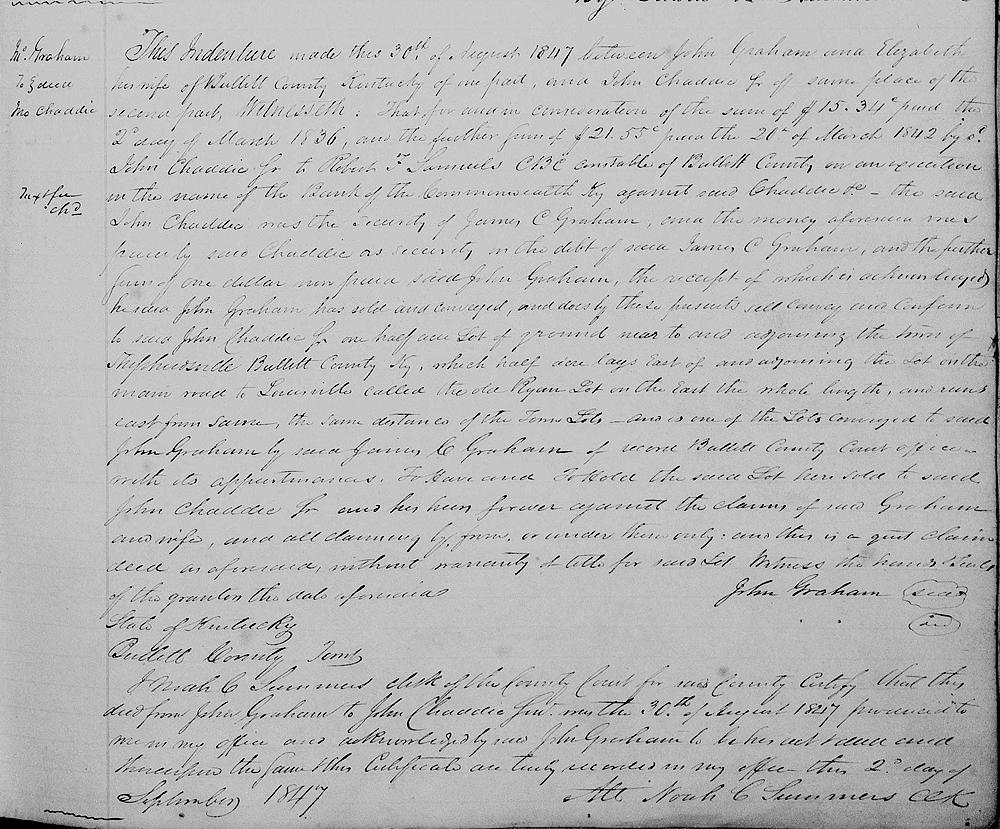 Jno Graham
To } deed
Jno Chaddic
This Indenture made this 30th of August 1847 between John Graham and Elizabeth
his wife of Bullett County Kentucky of one part, and John Chaddic Sr of same place of the
second part, Witnesseth: That for and in consideration of the sum of $15.34c paid the
2d day of March 1836, and the further sum of $21.55c paid the 20th of March 1842 by sd
John Chaddic Sr to Robert F Samuels CBC constable of Bullett County on an execution
in the name of the Bank of the Commonwealth Ky against said Chaddic &c - the said
chd
John Chaddic was the Security of James C Graham, and the money aforesaid was
paid by said Chaddic as security in the debt of said James C Graham, and the further
sum of one dollar now paid said John Graham, the receipt of which is acknowledged
he said John Graham has sold and conveyed, and does by these presents sell convey and confirm
to said John Chaddic Sr one half acre Lot of ground near to and adjoining the town of
Shepherdsville Bullett County Ky, which half acre lays East of and adjoining the Lot on the
main road to Louisville called the old Ryan Lot on the East the whole length, and runs
east from same, the same distance of the Town Lots - and is one of the Lots conveyed to said
John Graham by said James C Graham of record Bullett County Court office -
with its appurtenances. To Have and To Hold the said Lot here sold to said
John Chaddic Sr and his heirs forever against the claims of said Graham
and wife, and all claiming by, from, or under them only: and this is a quit claim
deed as aforesaid, without warranty of title for said Lot Witness the hands & seals
of the grantors the date aforesaid
John Graham seal
State of Kentucky
Bullett County
I Noah C Summers clerk of the County Court for said County certify that this
deed from John Graham to John Chaddic Senr. was the 30th of August 1847 produced to
me in my office and acknowledged by said John Graham to be his act & deed and
thereupon the same & this Certificate are truly recorded in my office this 2d day of
September 1847
Att Noah C Summers Clk